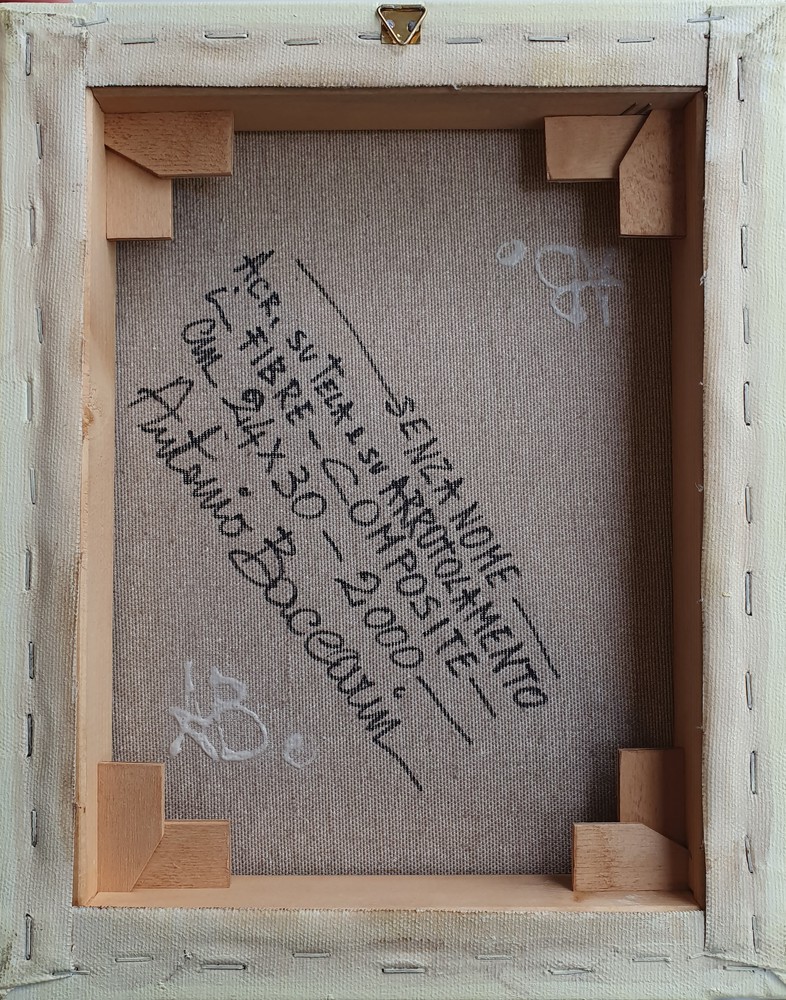 — SENZA NOME —
ACR. SU TELA E SU ARROTOLAMENTO
FIBRE - COMPOSITE -
CM 24X30 - 2000 -
Antonio Baccarin